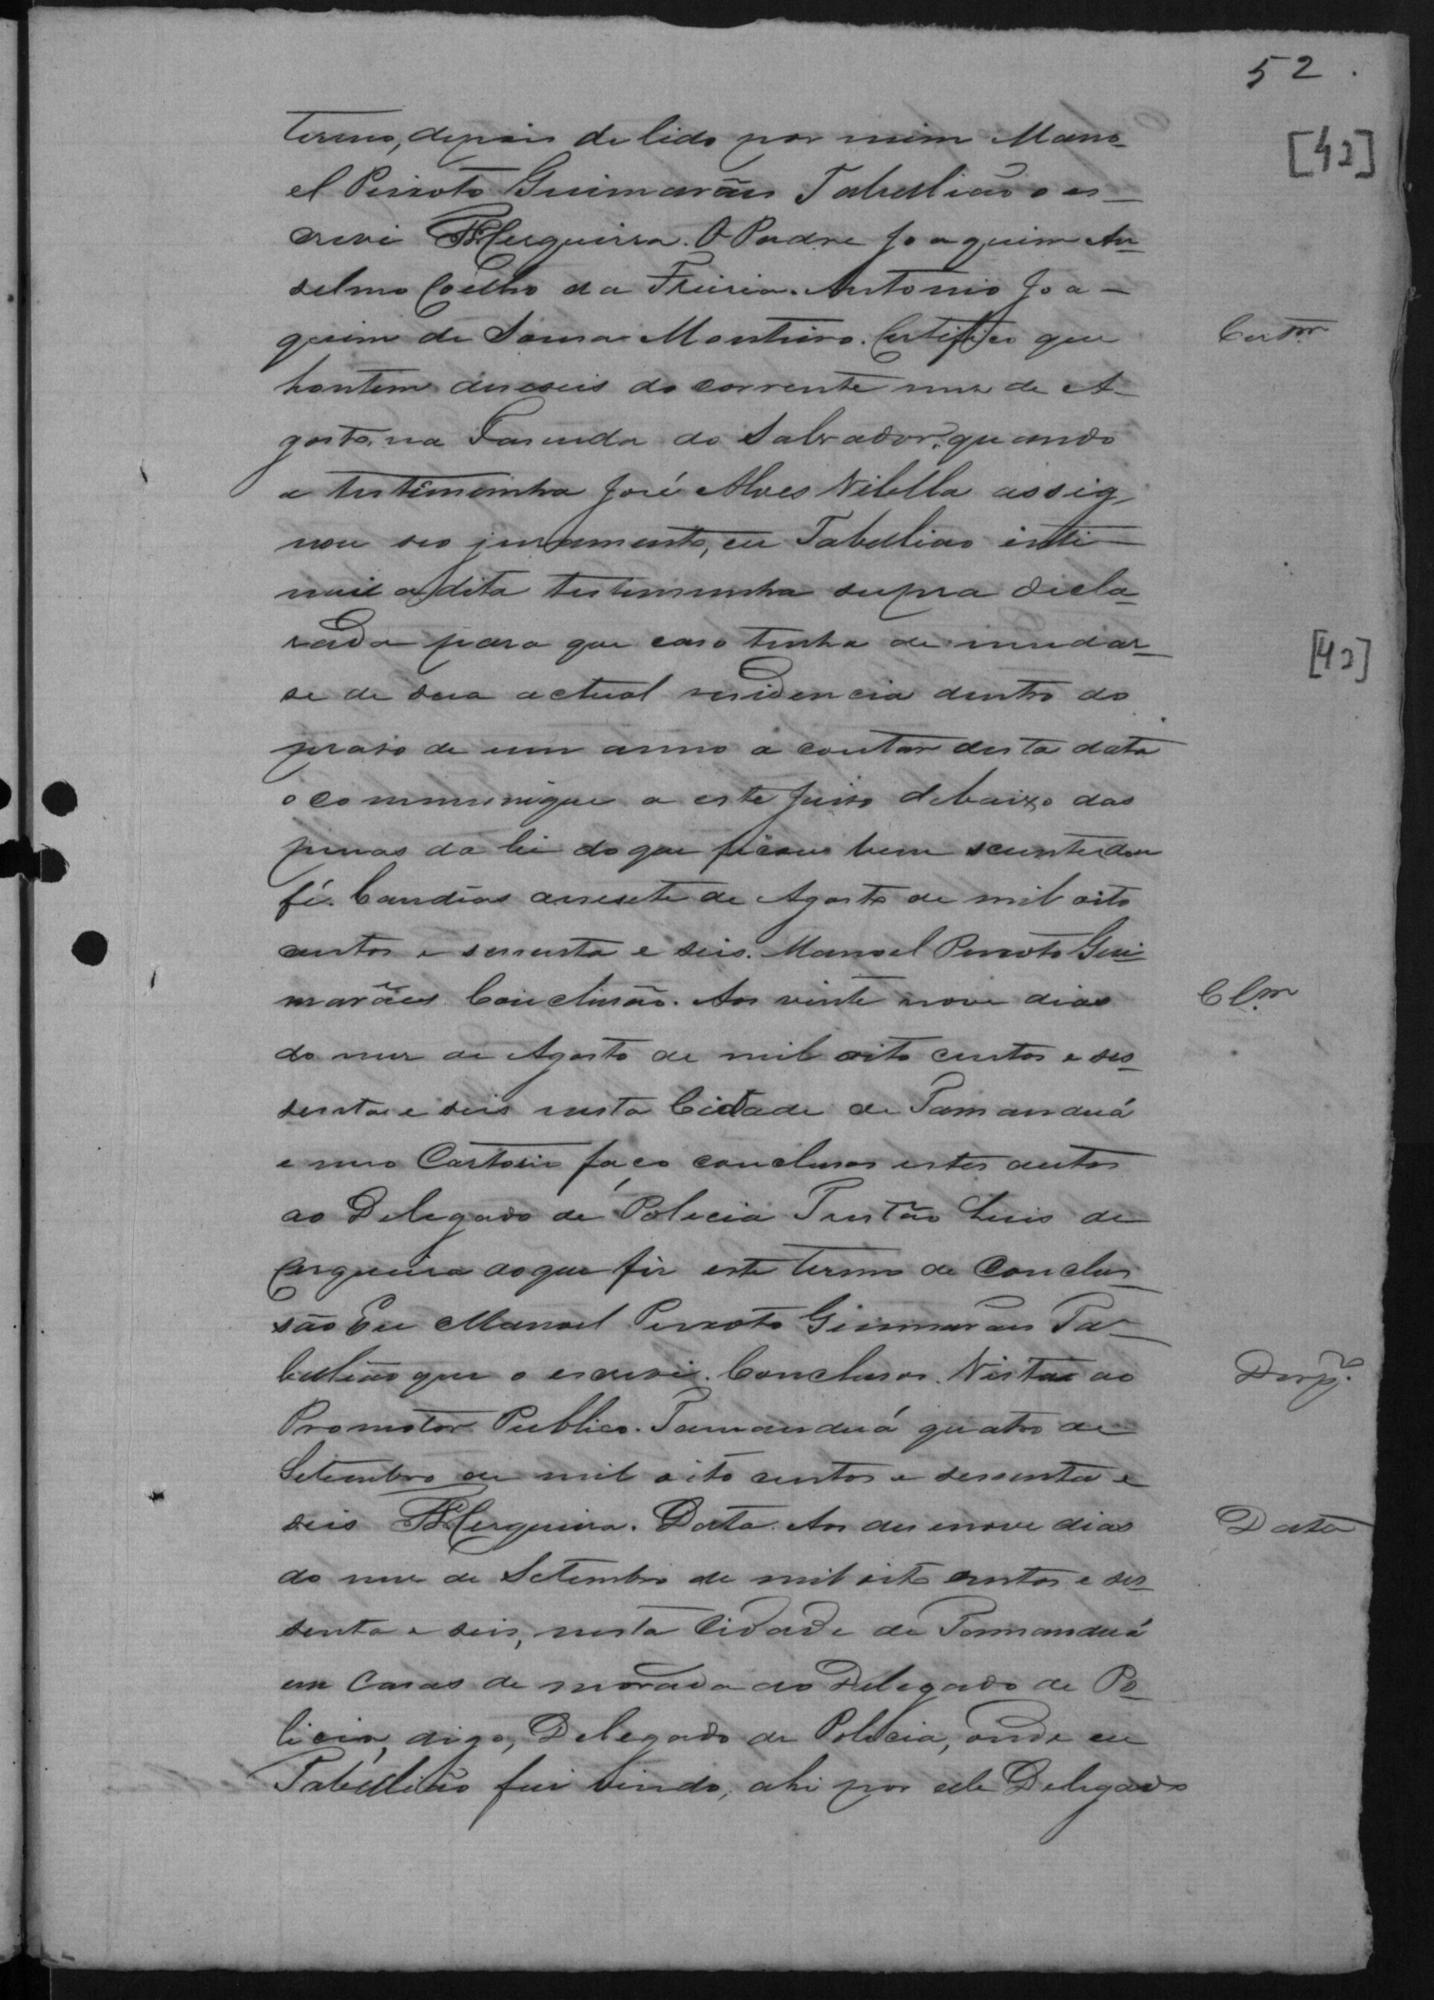 52.
[42]
termo, depois de lido por mim Mano-
el Peixoto Guimarães Tabellião o es-
crevi Cerqueira. O Padre Joaquim An-
selmo Coelho da Freiria. Antonio Joa-
quim de Sousa Monteiro. Certifico que
hontem deseseis do corrente mez de A-
gosto, na Fasenda do Salvador, quando
a testimunha José Alves Vilella assig-
nou seo juramento, eu Tabellião inti-
mei a dita testimunha supra decla-
rada para que caso tenha de mudar-
[42]
se de sua actual residencia dentro do
praso de um anno a contar desta data
o communique a este Juiso debaixo das
penas da lei do que ficou bem sciente dou
fé. Candeas desesete de Agosto de mil oito
centos e sessenta e seis. Manoel Peixoto Gui-
marães Conclusão. Aos vinte nove dias
Cl.m
do mez de Agosto de mil oito centos e ses-
senta e seis nesta Cidade de Tamanduá
e meo Cartorio faço conclusos estes autos
ao Delegado de Policia Tristão Luis de
Cerqueira do que fiz este termo de Conclu-
são Eu Manoel Peixoto Guimarães Ta-
bellião que o escrevi. Conclusos. Vista ao
Promotor Publico. Tamanduá quatro de
Setembro de mil oito centos e sessenta e
seis Cerqueira. Data. Aos desenove dias
Data
do mez de Setembro de mil oito centos e ses-
senta e seis, nesta Cidade de Tamanduá
em casas de morada do Delegado de Po-
licia, digo, Delegado de Policia, onde eu
Tabellião fui vindo, ahi por elle Delegado